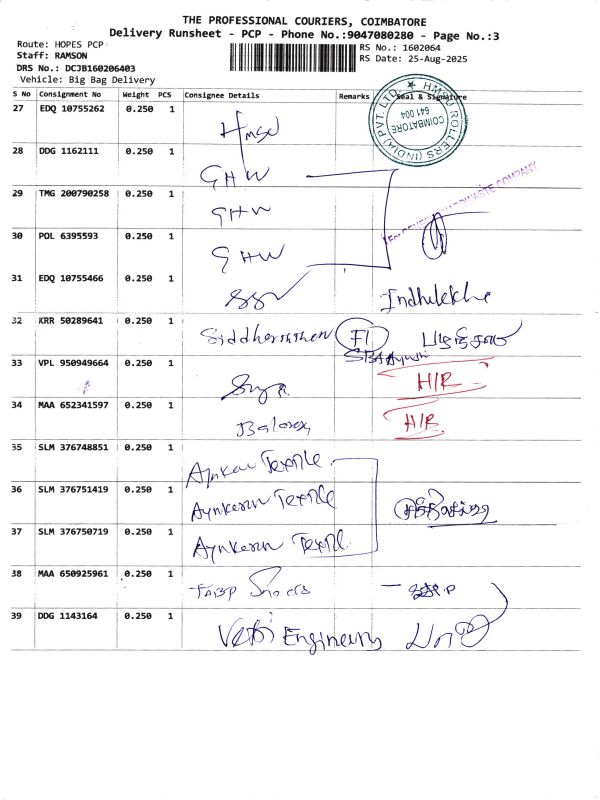 THE PROFESSIONAL COURIERS, COIMBATORE
Delivery Runsheet - PCP - Phone No.:9047080280 - Page No.:3
Route: HOPES PCP
Staff: RAMSON
DRS No.: DCJB160206403
Vehicle: Big Bag Delivery
RS No.: 1602064
RS Date: 25-Aug-2025
S No Consignment No Weight PCS Consignee Details Remarks Seal & Signature
HMSU ROLLERS (INDIA) PVT. LTD. ★
COIMBATORE
641 004
27 EDQ 10755262 0.250 1 Hmsu
28 DDG 1162111 0.250 1 GHW
29 TMG 200790258 0.250 1 GHW
30 POL 6395593 0.250 1 GHW
31 EDQ 10755466 0.250 1 Indhulekha
32 KRR 50289641 0.250 1 FI
33 VPL 950949664 0.250 1 H/R
34 MAA 652341597 0.250 1 H/R
35 SLM 376748851 0.250 1 Textile
36 SLM 376751419 0.250 1 Aynkeran Textile
37 SLM 376750719 0.250 1 Aynkeran Textile
38 MAA 650925961 0.250 1
39 DDG 1143164 0.250 1 Engineering